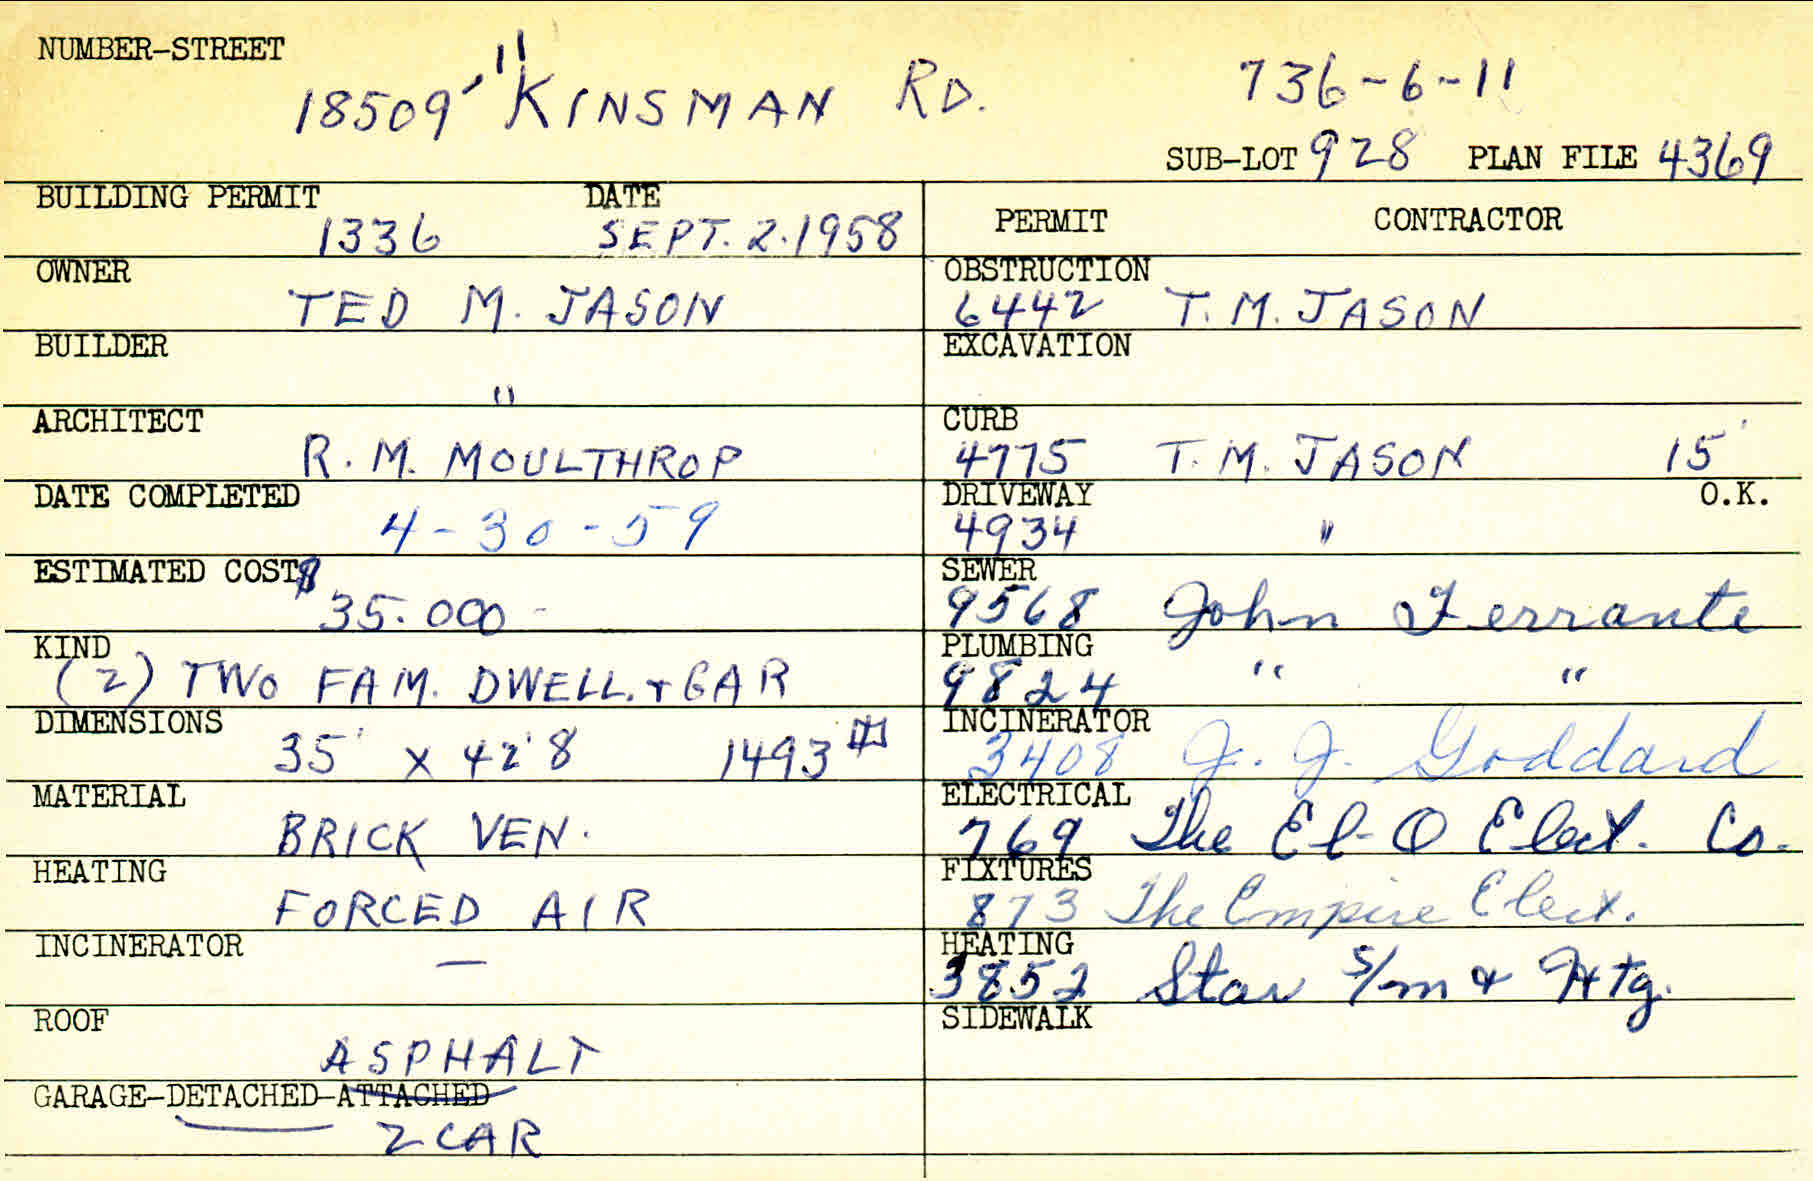 NUMBER-STREET
18509-11 KINSMAN RD. 736-6-11
SUB-LOT 928 PLAN FILE 4369
BUILDING PERMIT DATE
1336 SEPT. 2. 1958
OWNER
TED M. JASON
BUILDER
"
ARCHITECT
R. M. MOULTHROP
DATE COMPLETED
4-30-59
ESTIMATED COST $
35.000 -
KIND
(2) TWO FAM. DWELL. + GAR
DIMENSIONS
35' X 42'8 1493 □
MATERIAL
BRICK VEN.
HEATING
FORCED AIR
INCINERATOR
—
ROOF
ASPHALT
GARAGE-DETACHED-ATTACHED
2 CAR
PERMIT CONTRACTOR
OBSTRUCTION
6442 T. M. JASON
EXCAVATION
CURB
4775 T. M. JASON 15'
DRIVEWAY O.K.
4934 "
SEWER
9568 John Ferrante
PLUMBING
9824 " "
INCINERATOR
3408 J. J. Goddard
ELECTRICAL
769 The El-O Elect. Co.
FIXTURES
873 The Empire Elect.
HEATING
3852 Star S/m & Htg.
SIDEWALK